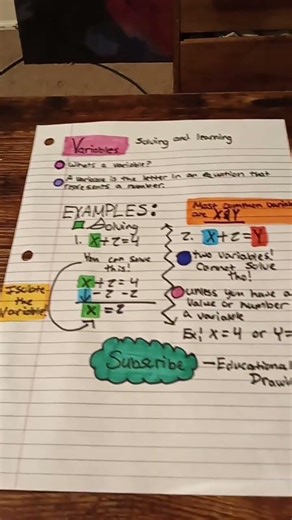 Variables
Solving and learning
Whats a variable?
A variable is the letter in an equation that
represents a number.
EXAMPLES:
Solving
1. X+2=4
You can solve
this!
X+2=4
-2 -2
X =2
Isolate
the
Variable
Most common variab
are X&Y
2. X+2=Y
two variables!
Cannot solve
tho!
unless you have a
value or number
a variable
Ex: X=4 or Y=
Subscribe
- Educational
Drawi